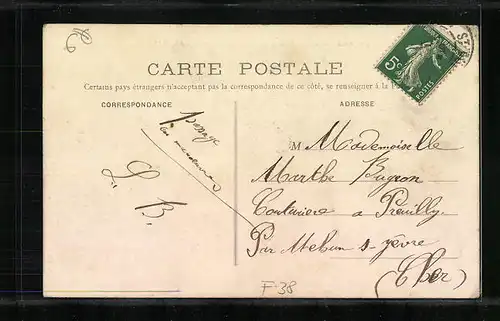 CARTE POSTALE
Certains pays étrangers n'acceptant pas la correspondance de ce côté, se renseigner à la
CORRESPONDANCE
ADRESSE
5c
POSTES
L. B.
M Mademoiselle
Marthe Bugeon
Couturière a Preuilly
Par Mehun s-yèvre
(Cher)
F-38